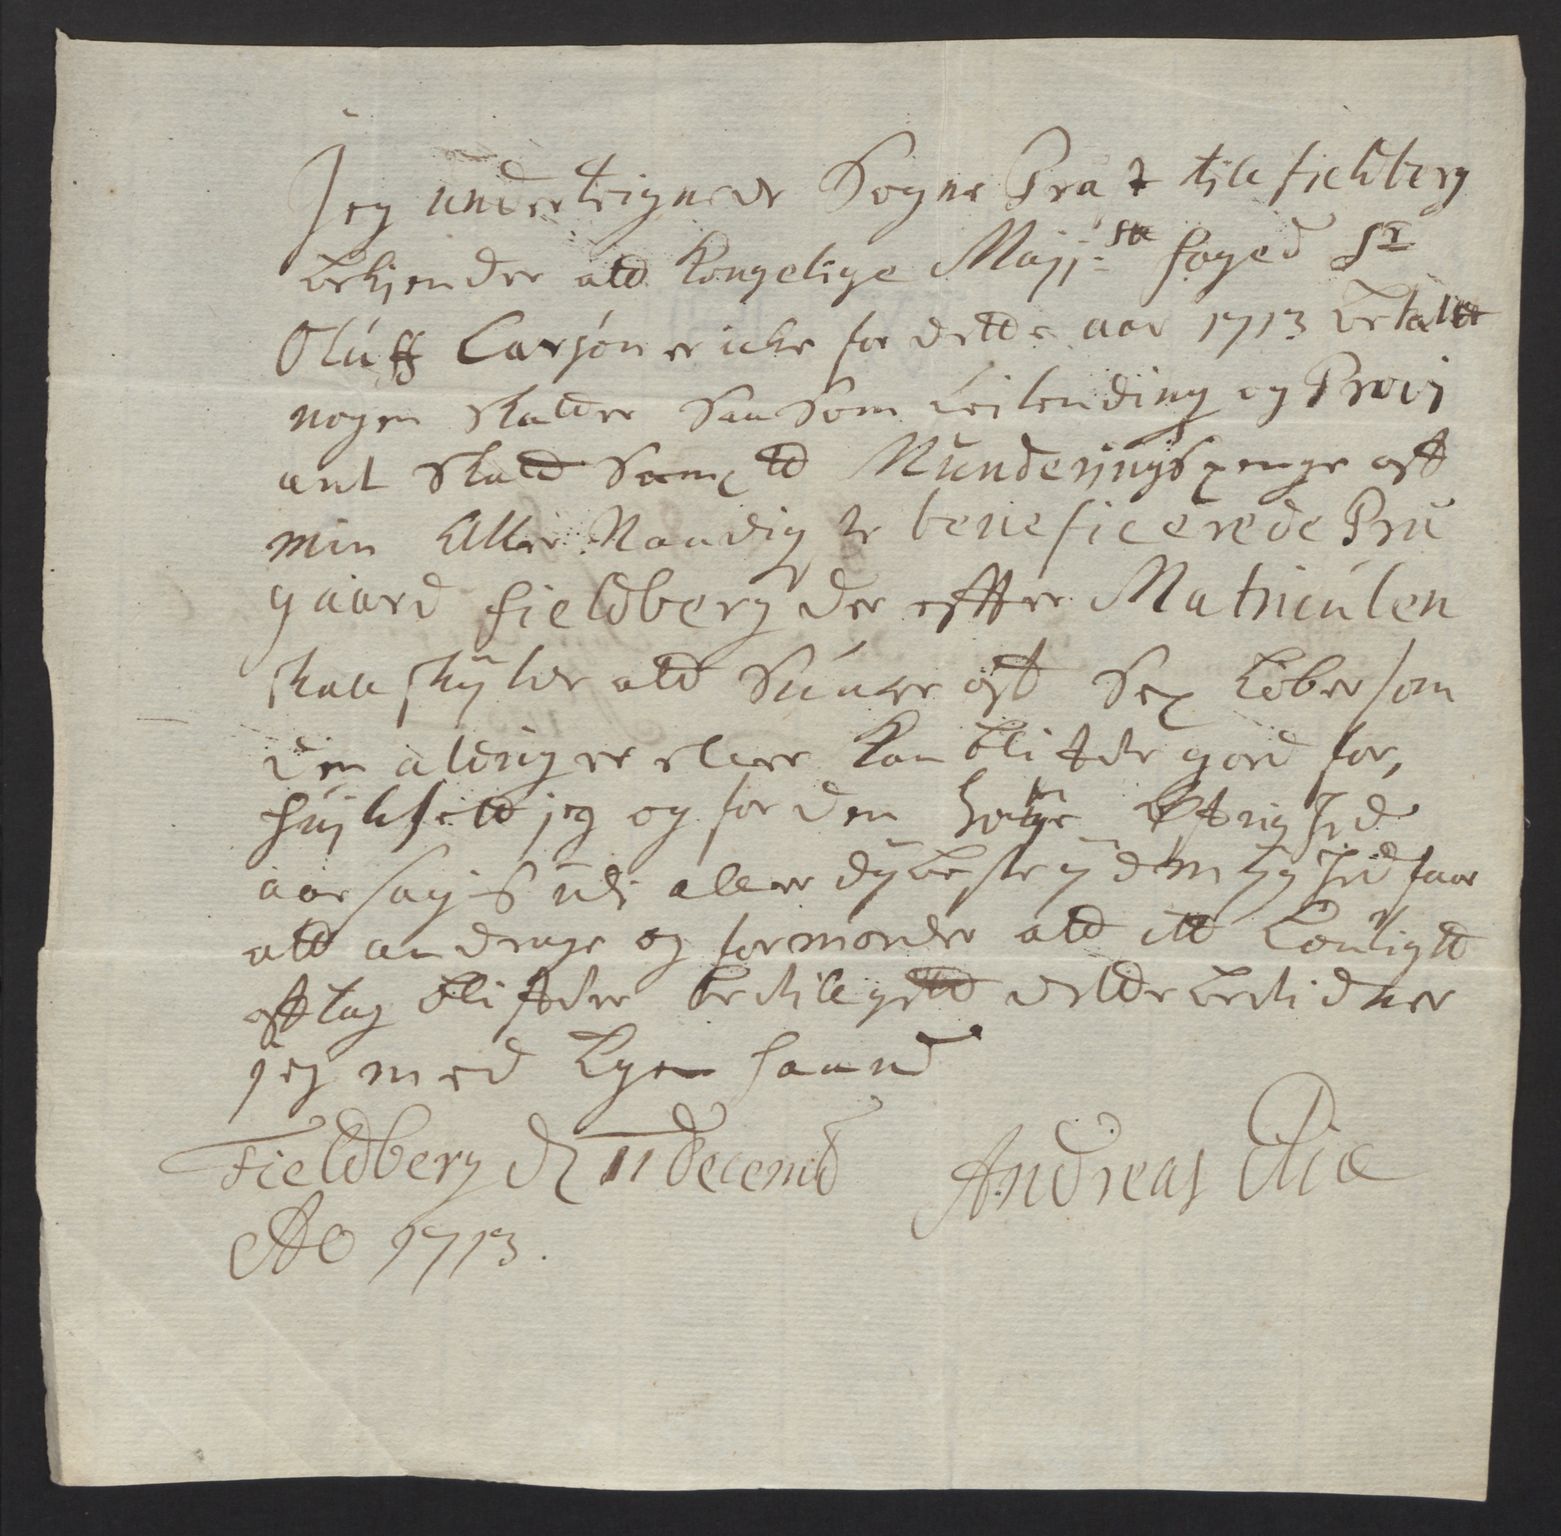 Jeg underteignede Sogne Præst till fieldberg
bekiender att Kongelige Majj:sts foged Sr
Oluff Larsøn er icke for dette aar 1713 betalt
nogen skatter saa som Leilending og Provi
ant skatt Sampt Munderingspenge aff
min Aller Naadigste beneficerede Præ
gaard fieldberg der effter Matriculen
skall skylde att Suare aff Sex Løber som
den aldrig er eller kan bliffve giord for,
huilchet jeg og for den høye Øffrighed
aarsagis udi aller dybeste ydmyghed faar
att andrage og formoder att ett Lonligtt
afftag bliffver bevilgett dette bevidner
jeg med Egen haand
Fieldberg d 11 Decemb
Ao 1713. Andreas Eliæ